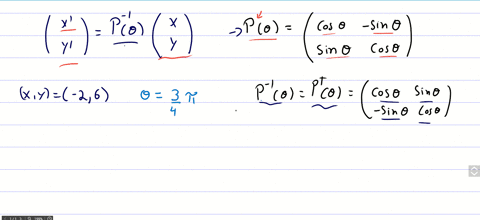 (x' y') = P⁻¹(θ) (x y) → P(θ) = (Cosθ -Sinθ Sinθ Cosθ)
(x,y) = (-2,6) θ = 3/4 π P⁻¹(θ) = Pᵀ(θ) = (Cosθ Sinθ -Sinθ Cosθ)